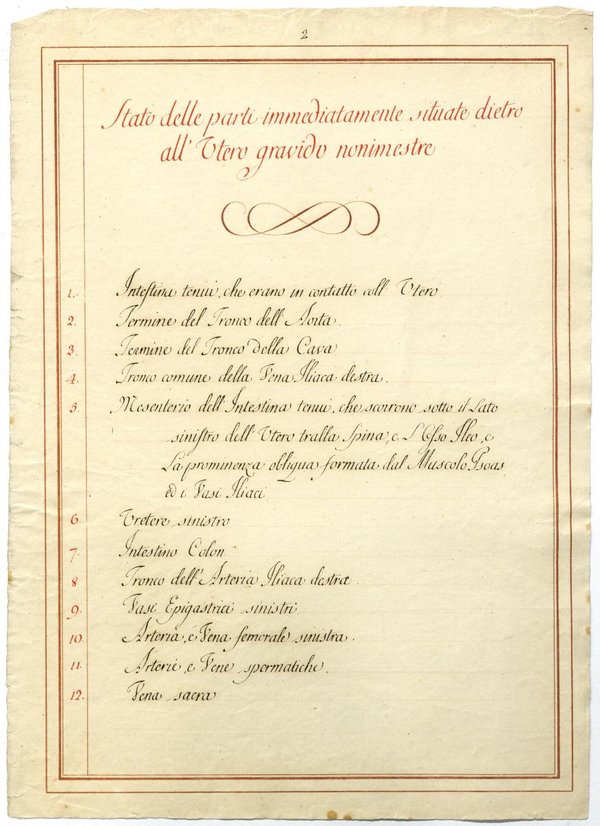 2
Stato delle parti immediatamente situate dietro
all' Utero gravido nonimestre
1. Intestina tenui, che erano in contatto coll' Utero
2. Termine del Tronco dell' Aorta.
3. Termine del Tronco della Cava
4. Tronco comune della Vena Iliaca destra.
5. Mesenterio dell' Intestina tenui, che scorrono sotto il Lato
sinistro dell' Utero tralla Spina, e L'Osso Ileo, e
La prominenza obliqua formata dal Muscolo Psoas
ed i Vasi Iliaci
6. Uretere sinistro
7. Intestino Colon
8 Tronco dell' Arteria Iliaca destra.
9. Vasi Epigastrici sinistri
10. Arteria, e Vena femorale sinistra.
11. Arterie, e Vene spermatiche.
12. Vena sacra